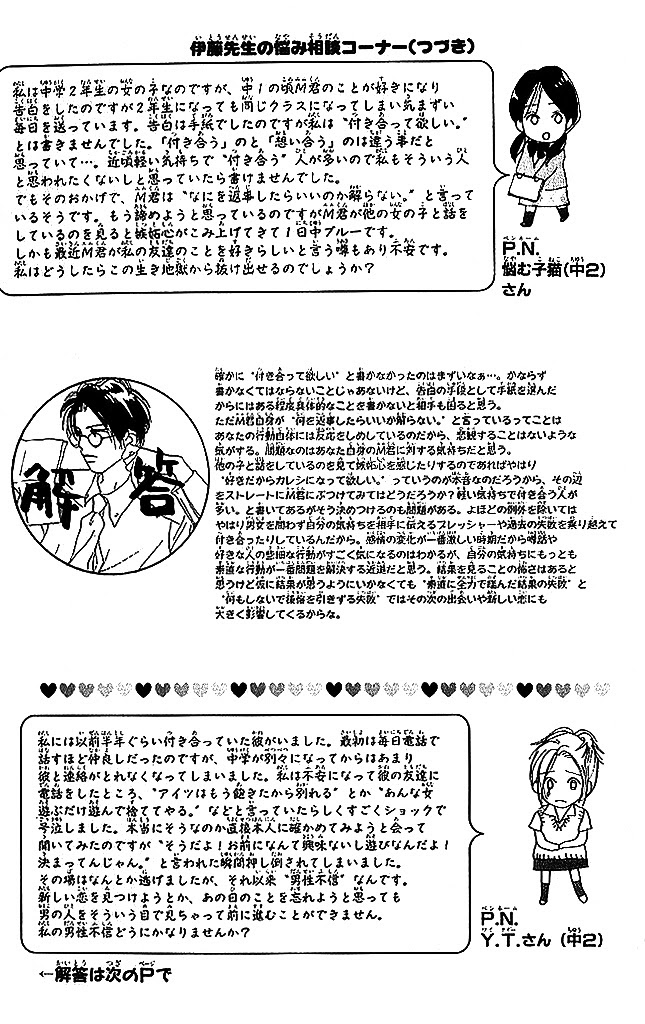 伊藤先生の悩み相談コーナー(つづき)
私は中学2年生の女の子なのですが、中1の頃M君のことが好きになり
告白をしたのですが2年生になっても同じクラスになってしまい気まずい
毎日を送っています。告白は手紙でしたのですが私は“付き合って欲しい。”
とは書きませんでした。「付き合う」のと、「想い合う」のは違う事だと
思っていて…。近頃軽い気持ちで“付き合う”人が多いので私もそういう人
と思われたくないしと思っていたら書けませんでした。
でもそのおかげで、M君は“なにを返事したらいいのか解らない。”と言って
いるそうです。もう諦めようと思っているのですがM君が他の女の子と話を
しているのを見ると嫉妬心がこみ上げてきて1日中ブルーです。
しかも最近M君が私の友達のことを好きらしいと言う噂もあり不安です。
私はどうしたらこの生き地獄から抜け出せるのでしょうか?
P.N.
悩む子猫(中2)
さん
解答
確かに“付き合って欲しい”と書かなかったのはまずいなぁ…。かならず
書かなくてはならないことじゃあないけど、告白の手段として手紙を選んだ
からにはある程度具体的なことを書かないと相手も困ると思う。
ただM君自身が“何を返事したらいいか解らない。”と言っているってことは
あなたの行動自体には反応をしめしているのだから、悲観することはないような
気がする。問題なのはあなた自身のM君に対する気持ちだと思う。
他の子と話をしているのを見て嫉妬心を感じたりするのであればやはり
“好きだからカレシになって欲しい。”っていうのが本音なのだろうから、その辺
をストレートにM君にぶつけてみてはどうだろうか?軽い気持ちで付き合う人が
多い。と書いてあるがそう決めつけるのも問題がある。よほどの例外を除いては
やはり男女を問わず自分の気持ちを相手に伝えるプレッシャーや過去の失敗を乗り越えて
付き合ったりしているんだから。感情の変化が一番激しい時期だから噂話や
好きな人の些細な行動がすごく気になるのはわかるが、自分の気持ちにもっとも
素直な行動が一番問題を解決する近道だと思う。結果を見ることの怖さはあると
思うけど仮に結果が思うようにいかなくても“素直に全力で臨んだ結果の失敗”と
“何もしないで後悔を引きずる失敗”ではその次の出会いや新しい恋にも
大きく影響してくるからな。
私には以前半年ぐらい付き合っていた彼がいました。最初は毎日電話で
話すほど仲良しだったのですが、中学が別々になってからはあまり
彼と連絡がとれなくなってしまいました。私は不安になって彼の友達に
電話をしたところ、“アイツはもう飽きたから別れる”とか“あんな女
遊ぶだけ遊んで捨ててやる。”などと言っていたらしくすごくショックで
号泣しました。本当にそうなのか直接本人に確かめてみようと会って
聞いてみたのですが“そうだよ!お前になんて興味ないし遊びなんだよ!
決まってんじゃん。”と言われた瞬間押し倒されてしまいました。
その場はなんとか逃げましたが、それ以来“男性不信”なんです。
新しい恋を見つけようとか、あの日のことを忘れようと思っても
男の人をそういう目で見ちゃって前に進むことができません。
私の男性不信どうにかなりませんか?
P.N.
Y.T.さん(中2)
←解答は次のPで